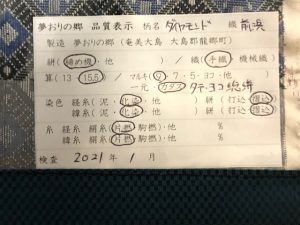 夢おりの郷 品質表示 柄名 ダイヤモンド 織
製造 夢おりの郷(奄美大島 大島郡龍郷町)
絣(締め機・他 )/織(手織・機械織)
算(13 15.5)/マルキ(9・7・5・ヨコ・他
一元・カタス タテ・ヨコ総絣
染色 経糸(泥・化染・他 )絣(打込・摺込)
緯糸(泥・化染・他 )絣(打込・摺込)
糸 経糸 絹糸(片撚・駒撚・他 )
緯糸 絹糸(片撚・駒撚・他 )
検査 2021年 1月